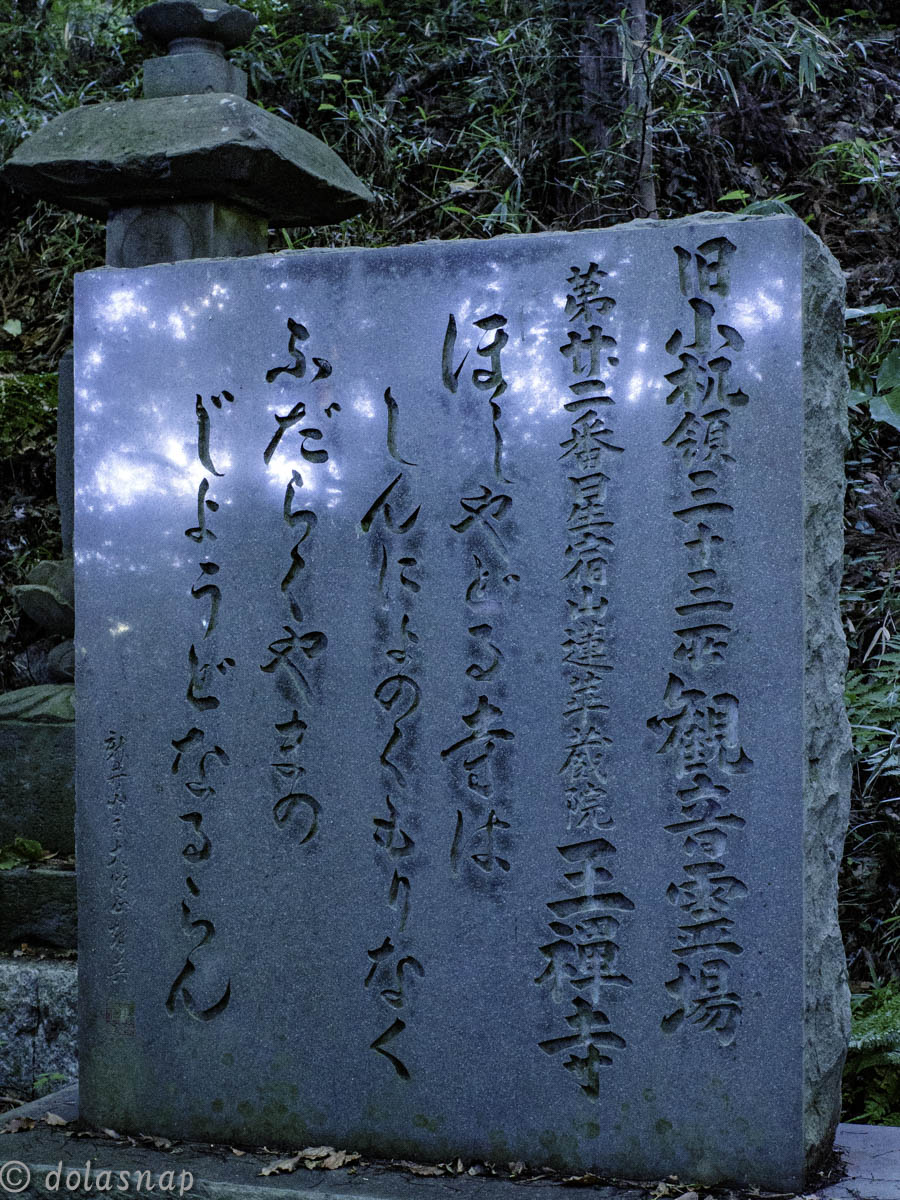 旧小机領三十三所観音霊場
第廿二番星宿山蓮華蔵院王禅寺
ほしやどる寺は
しんによのくもりなく
ふだらくやまの
じようどなるらん
© dolasnap